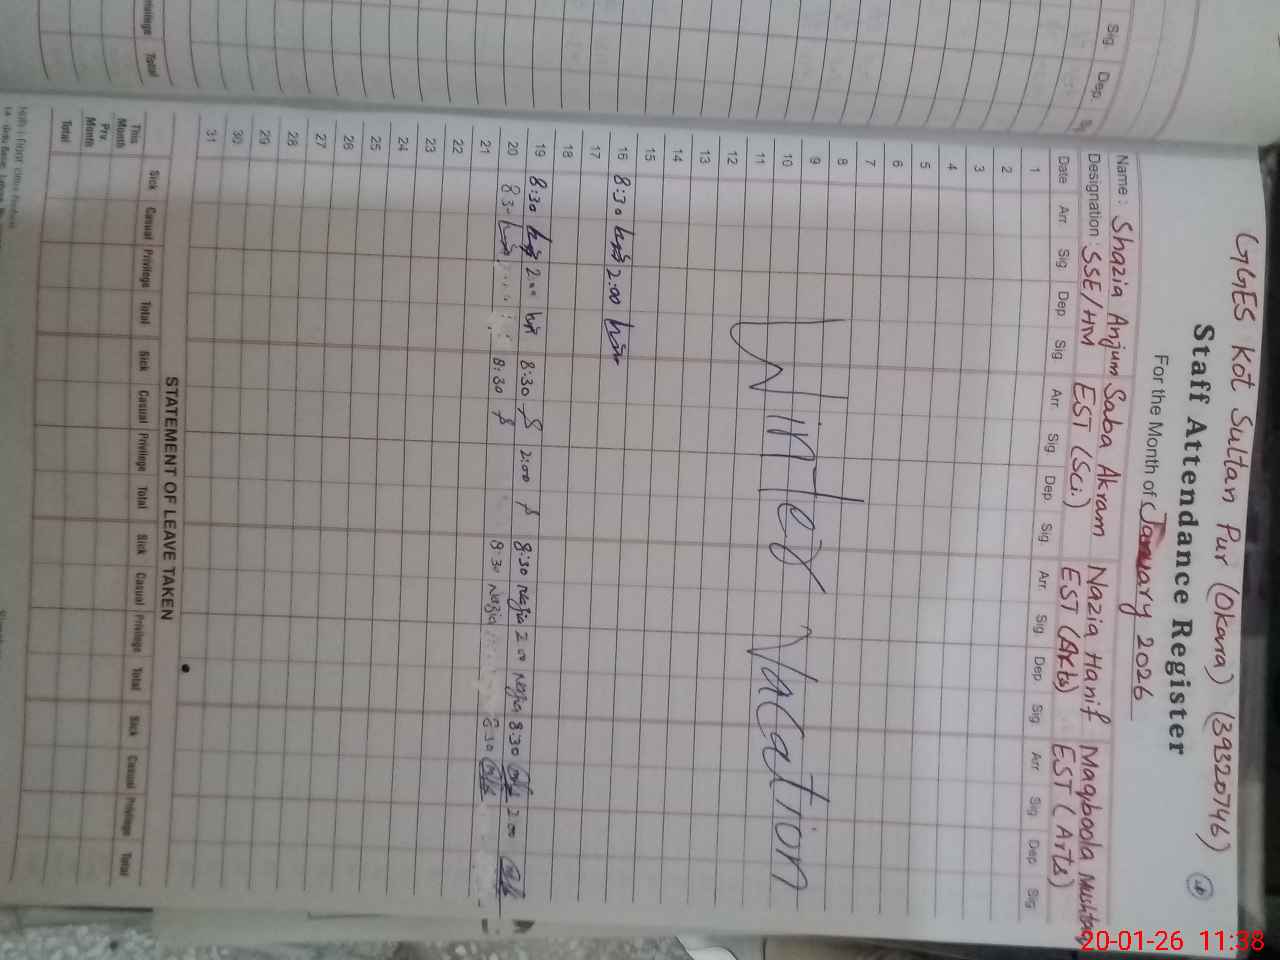 GGES Kot Sultan Pur (Okara) (39320746)
Staff Attendance Register
For the Month of January 2026
Name : Shazia Anjum Saba Akram Nazia Hanif Maqboola Mushtaq
Designation : SSE/HM EST (Sci.) EST (Arts) EST (Arts)
Date Arr. Sig Dep Sig Arr. Sig. Dep Sig. Arr. Sig Dep Sig. Arr Sig. Dep Sig
1
2
3
4
5
6
7
8
9
10
11
12
Winter Vacation
13
14
15
16 8:30 2:00
17
18
19 8:30 2:00 8:30 2:00 8:30 Nazia 2:00 Nazia 8:30 2:00
20 8:30 8:30 8:30 Nazia 8:30
21
22
23
24
25
26
27
28
29
30
31
STATEMENT OF LEAVE TAKEN
Sick Casual Privilege Total Sick Casual Privilege Total Sick Casual Privilege Total Sick Casual Privilege Total
This Month
Prv. Month
Total
Sig. Dep.
Total
20-01-26 11:38